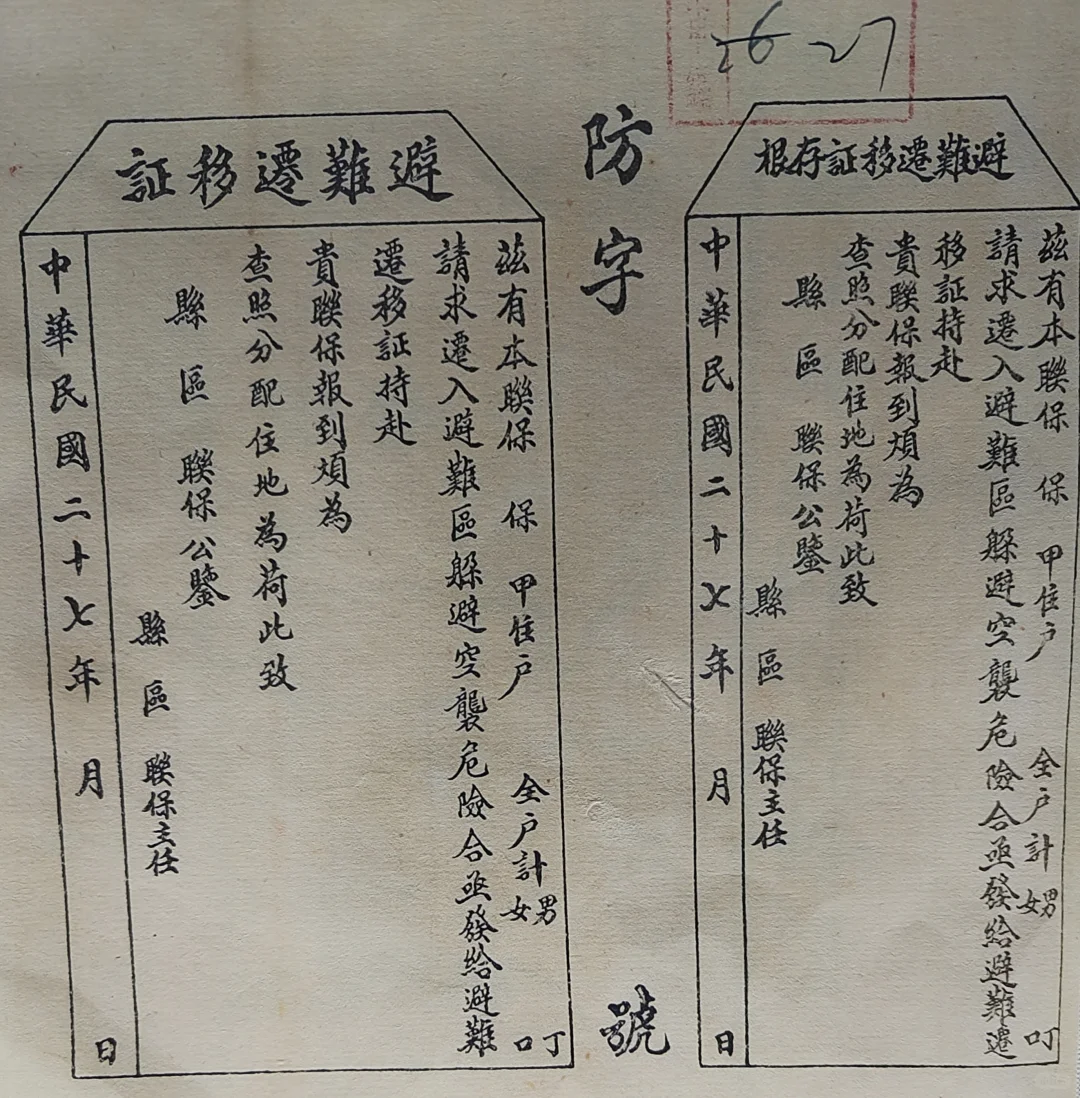 26-27
避難遷移証存根
茲有本聯保　保　甲住户　全户計男女　丁口
請求遷入避難區躲避空襲危險合亟發給避難遷
移証持赴
貴聯保報到煩為
查照分配住地為荷此致
縣　區　聯保公鑒
縣　區　聯保主任
中華民國二十七年　月　日
防字　號
避難遷移証
茲有本聯保　保　甲住户　全户計男女　丁口
請求遷入避難區躲避空襲危險合亟發給避難
遷移証持赴
貴聯保報到煩為
查照分配住地為荷此致
縣　區　聯保公鑒
縣　區　聯保主任
中華民國二十七年　月　日